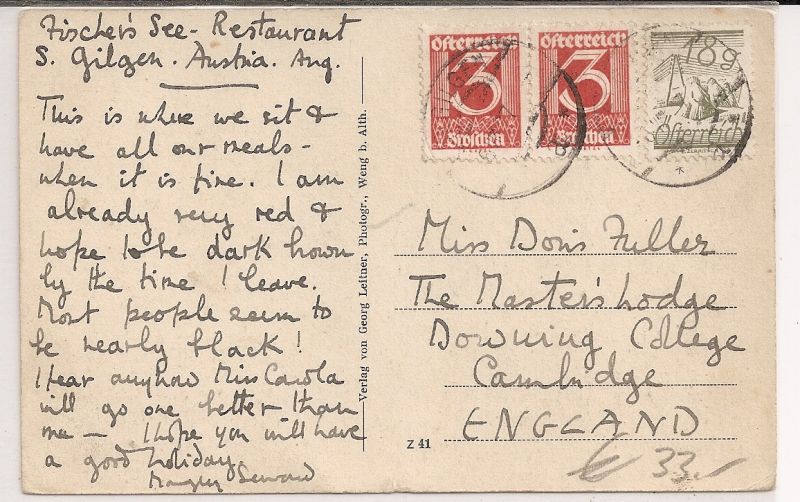 Fischer's See- Restaurant
S. Gilgen. Austria. Aug.
This is where we sit &
have all our meals -
when it is fine. I am
already very red &
hope to be dark brown
by the time I leave.
Most people seem to
be nearly black!
I fear anyhow Miss Carola
will go one better than
me — I hope you will have
a good holiday.
Seward
Verlag von Georg Leitner, Photogr., Weng b. Alth.
Österreich
3
Groschen
Österreich
3
Groschen
18g
Österreich
Miss Doris Fuller
The Master's Lodge
Downing College
Cambridge
ENGLAND
Z 41
33.-